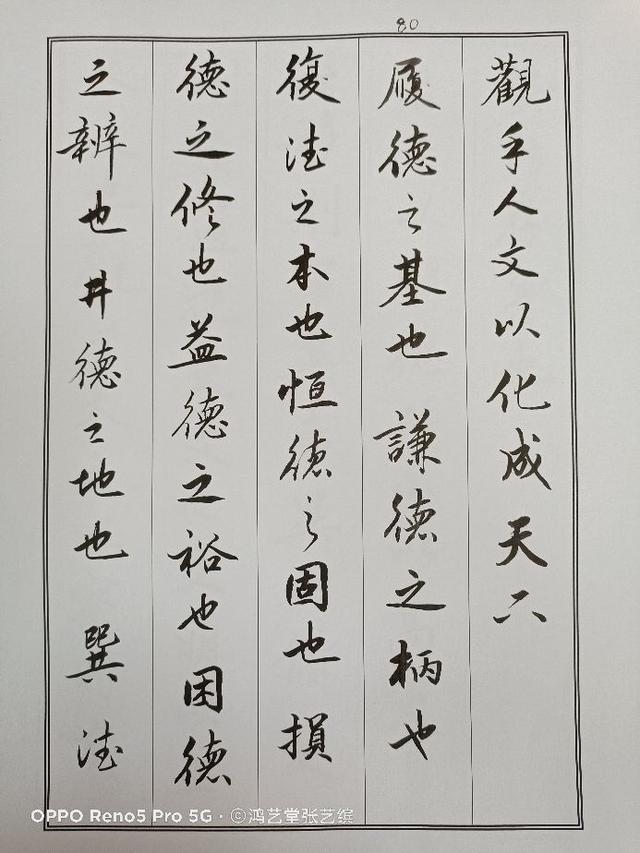 80
觀乎人文以化成天下
履德之基也 謙德之柄也
復德之本也恒德之固也 損
德之修也益德之裕也困德
之辨也井德之地也 巽德
OPPO Reno5 Pro 5G · ©鸿艺堂张艺缤